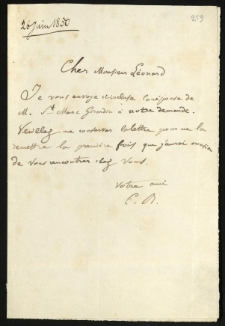 20 juin 1850
259
Cher Monsieur Léonard
Je vous envoye ci-incluse la réponse de
M. St Marc Girardin à notre demande.
Veuillez me conserver la lettre pour me la
remettre la première fois que j'aurai occasion
de vous rencontrer chez vous.
Votre ami